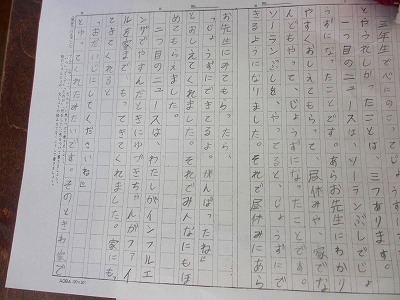 三年生でべにのこ
とやうれしかったことは、三つあります。
一つ目のニュースは、ソーランぶしでじょ
うずになったことです。あらお先生にわかり
やすくおしえてもらって、昼休みや、家でな
んどもやって、じょうずになったことです。
ソーランぶしを、やってると、じょうずにで
きるようになりました。それで昼休みにあら
お先生にみてもらったら、
「じょうずにできてるよ。がんばったね」
とおしえてくれました。それでみんなにもほ
めてもらえました。
二つ目のニュースは、わたしがインフルエ
ンザでやすんだときにゆづきちゃんがファイ
ルを家まで、もってきてくれました。家にも
ってきてくれると
「おだいじにしてくださいね」
とゆってくれたみたいです。そのときわ家で